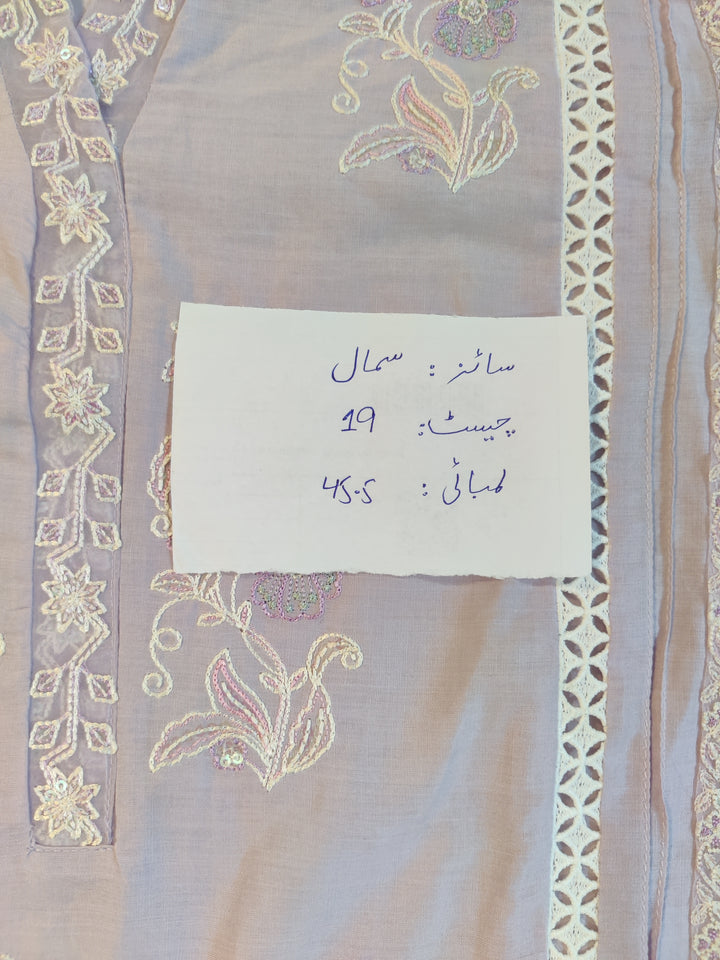 سائز: سمال
چیسٹ: 19
لمبائی: 45.5